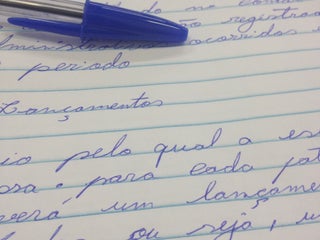 do no
registrad
administrativ ocorridos
periodo
Lançamentos
io pelo qual a es
osa. para cada fat
verá um lançame
ou seja, u